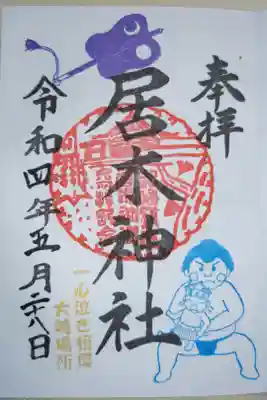 奉拝
居木神社
令和四年五月二十八日
一心泣き相撲
大崎場所